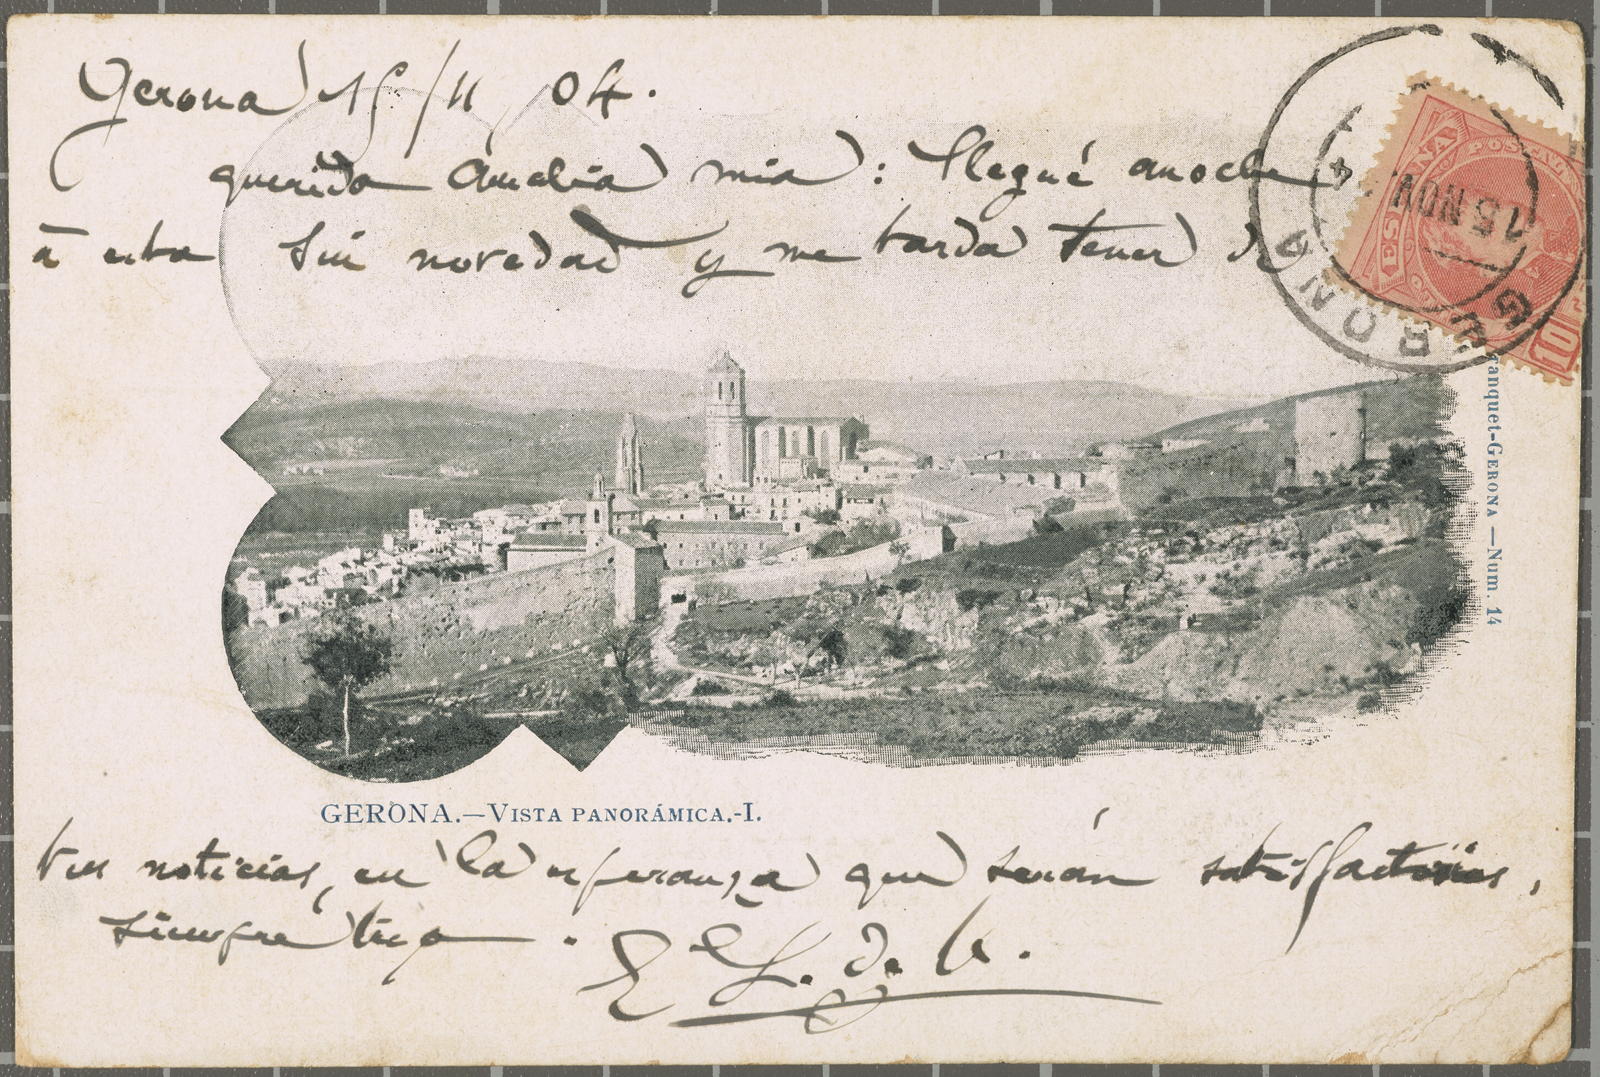 Gerona 15/11 04.
querida Amalia mia: llegué anoche
á esta sin novedad y me tarda tener de
GERONA
15 NOV 04
ESPAÑA
POSTAL
10
anquet-GERONA—Num. 14
GERONA.—VISTA PANORÁMICA.-I.
tus noticias, en la esperanza que serán satisfactorias,
siempre tuyo.
E L. de A.